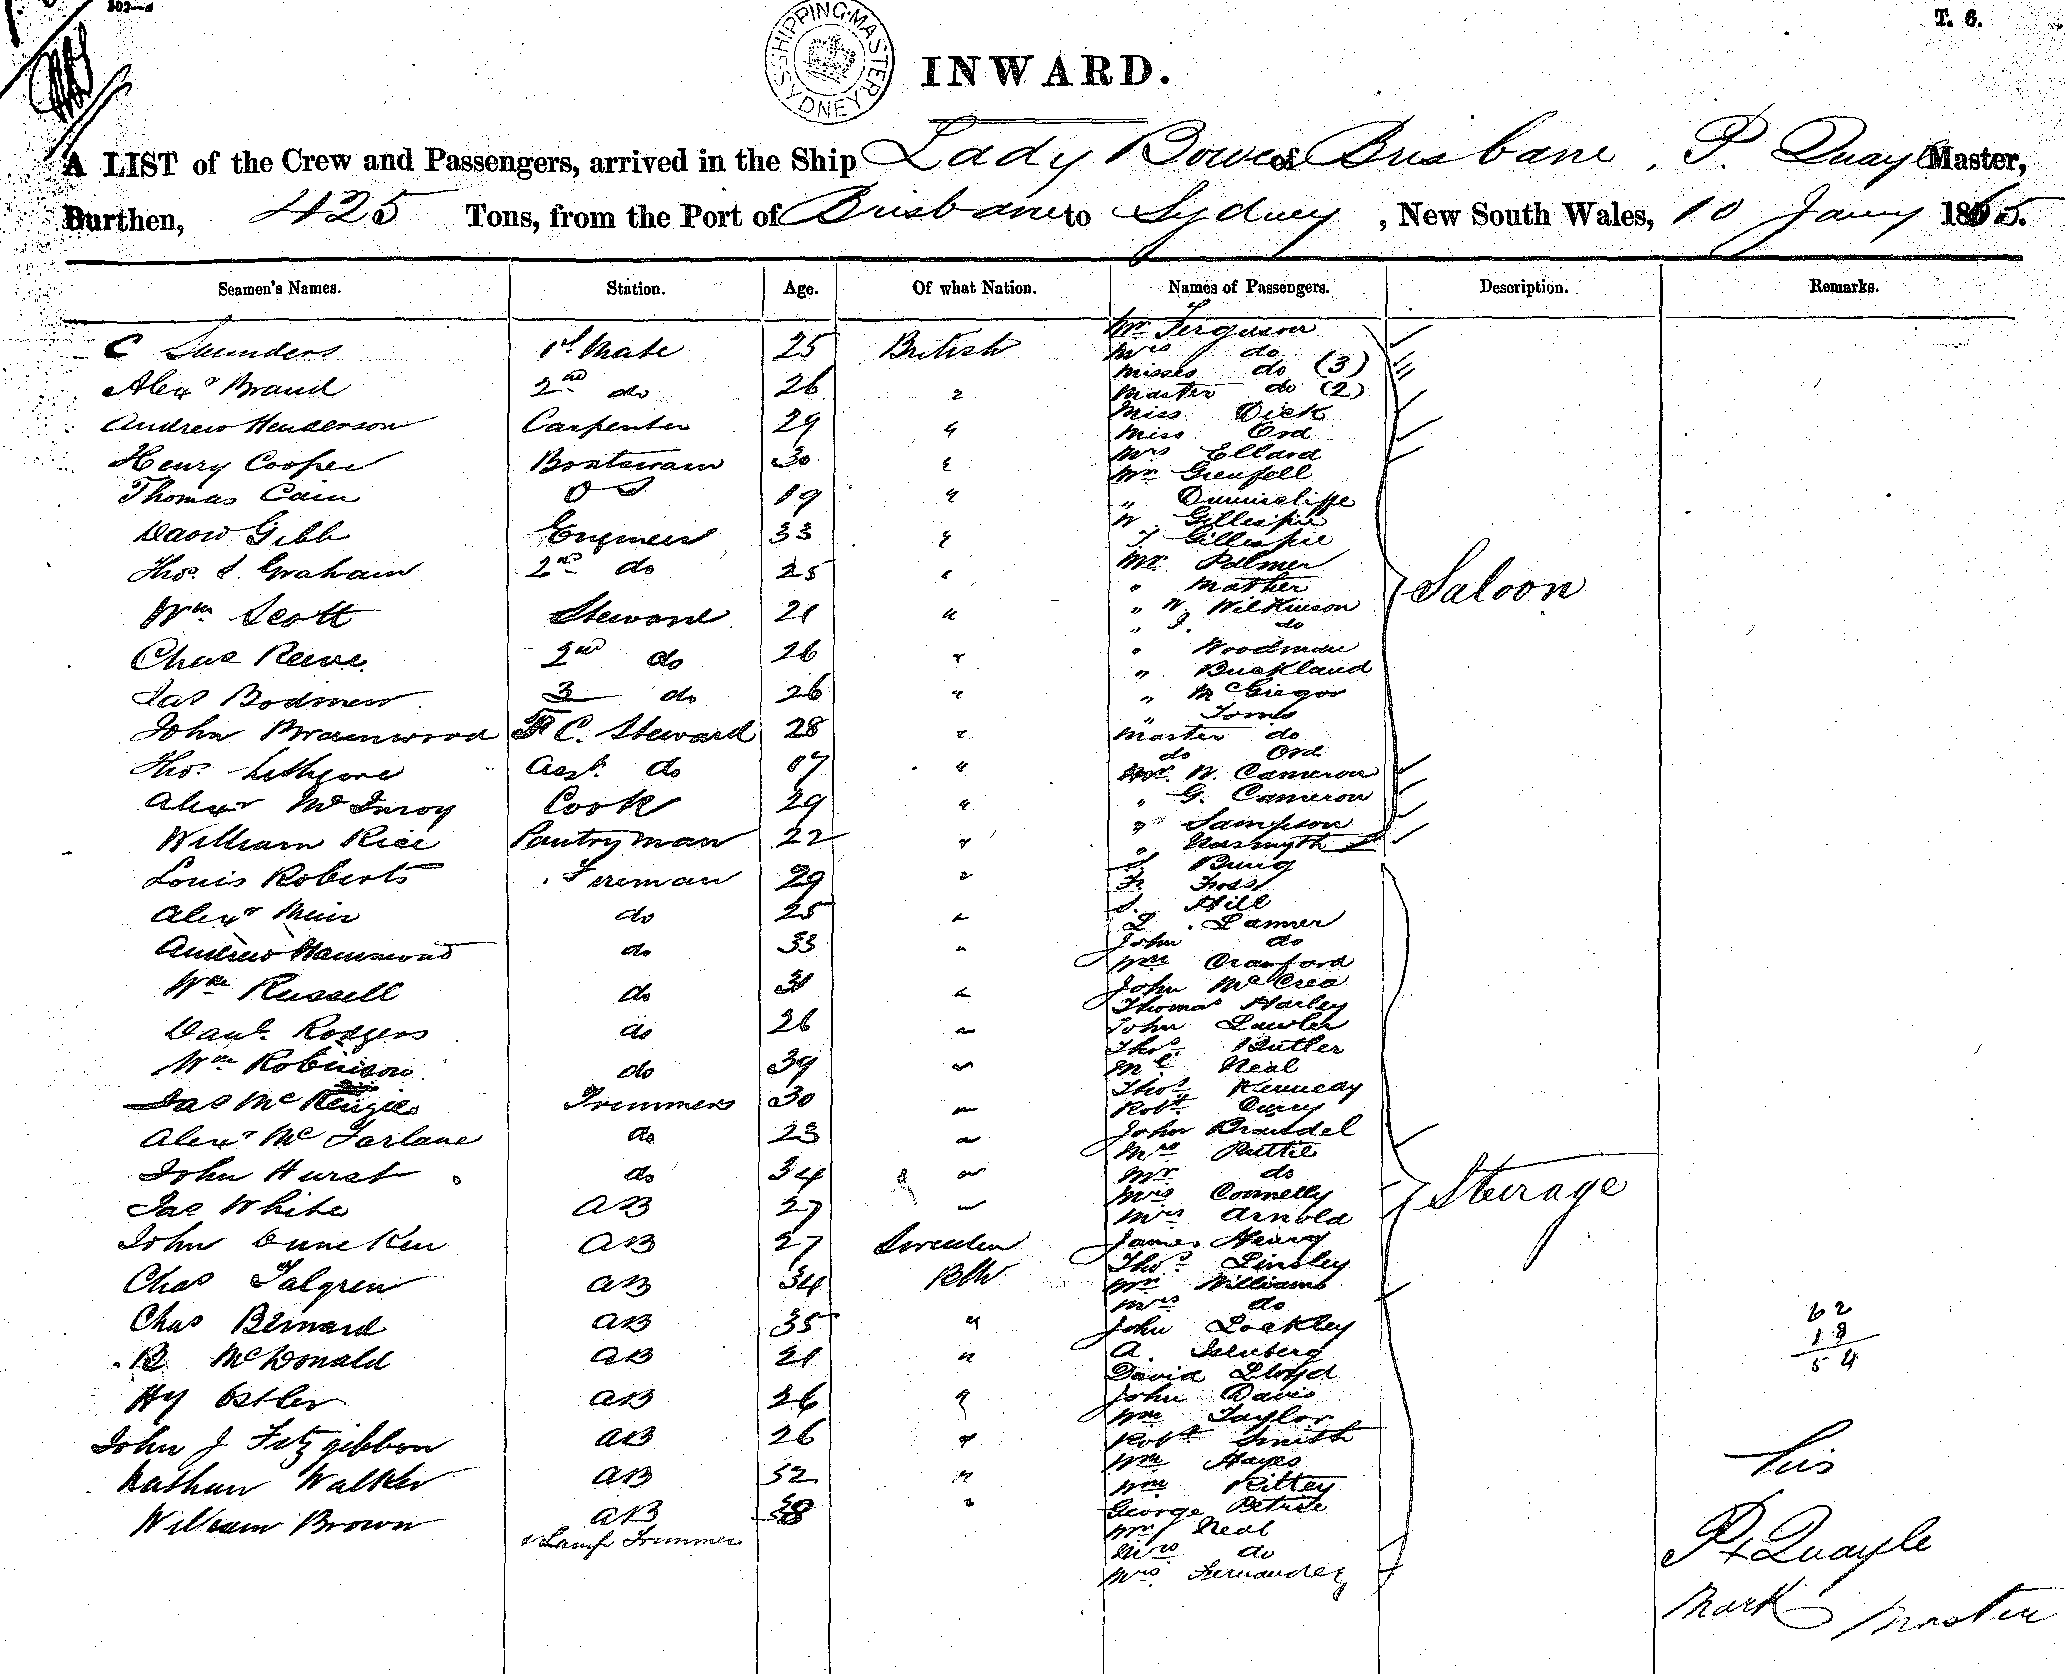 T. 6.
SHIPPING MASTER SYDNEY
INWARD.
A LIST of the Crew and Passengers, arrived in the Ship Lady Bowen of Brisbane, P. Quayle Master,
Burthen, 425 Tons, from the Port of Brisbane to Sydney, New South Wales, 10 Jany 1865.
Seamen's Names. Station. Age. Of what Nation. Names of Passengers. Description. Remarks.
C Saunders 1st Mate 25 British
Alexr Braud 2nd do 26 "
Andrew Henderson Carpenter 29 "
Henry Cooper Boatswain 30 "
Thomas Cain O S 19 "
David Gibb Engineer 33 "
Thos. S. Graham 2nd do 25 "
Wm Scott Steward 21 "
Chas Reeve 2nd do 26 "
Jas Bodmen 3 do 26 "
John F. C. Steward 28 "
Thos. Lethgore Asst. do 17 "
Alexr McInroy Cook 29 "
William Rice Pantryman 22 "
Louis Roberts Fireman 29 "
Alexr Muir do 25 "
Andrew Hammond do 33 "
Wm Russell do 31 "
Danl. Rodgers do 26 "
Wm Robinson do 39 "
Jas McKenzie Trimmers 30 "
Alexr McFarlane do 23 "
John Hurst do 34 "
Jas White AB 27 "
John AB 27 Sweden
Chas Talgren AB 34 Btsh
Chas Bernard AB 35 "
R McDonald AB 21 "
Hy Ostler AB 26 "
John J Fitzgibbon AB 26 "
Nathan Walker AB 32 "
William Brown AB 38 "
& Lamp Trimmer
Mr Ferguson
Mrs do
Misses do (3)
Master do (2)
Miss Dick
Miss Ord
Mrs Ellard
Mr Grenfell
" Dunnicliffe
W. Gillespie
T. Gillespie
Mr. Palmer
" Mather
" W Wilkinson
" J. do
" Woodman
" Buckland
" McGregor
" Toms
Master do
do Ord
Mr. W. Cameron
" G. Cameron
" Sampson
" Nasmyth
Saloon
J Bung
Fr Foss
S. Hill
L. Lamer
John do
Wm Crawford
John McCrea
Thomas Harley
John Lawler
Thos. Butler
Ml Neal
Thos Kennedy
Robt. Curry
John Brandel
Mrs Ruttle
Mr do
Mrs Connelly
Mrs Arnold
James Henry
Thos. Linsley
Mr Williams
Mrs do
John Lockley
A. Isenberg
David Lloyd
John Davis
Wm Taylor
Robt Smith
Wm Hayes
Wm Kitley
George Petrie
Mr Neal
Mrs do
Mrs. Fernandez
Steerage
62
18
54
his
P x Quayle
Mark Master